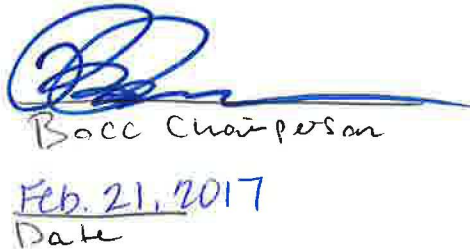 BOCC Chairperson
Feb. 21, 2017
Date